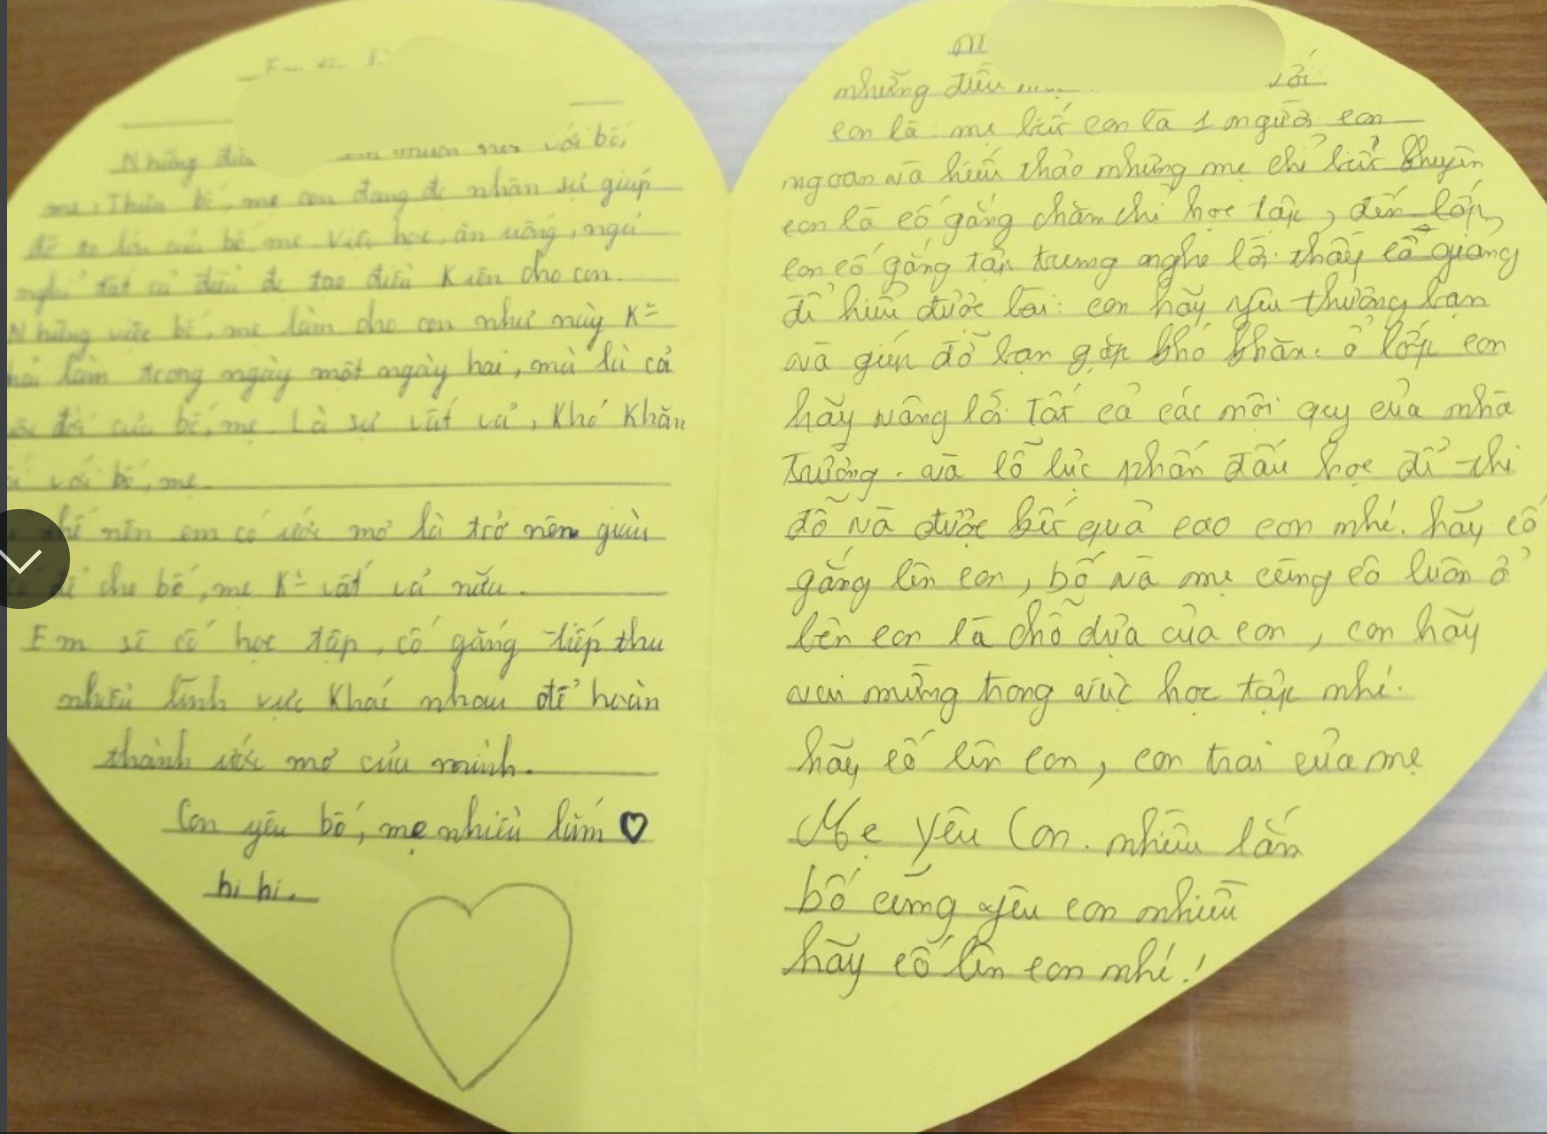 Em
Những điều em muốn nói với bố,
mẹ: Thưa bố, mẹ con đang đc nhận sự giúp
đỡ to lớn của bố mẹ. Việc học, ăn uống, ngủ
nghỉ tất cả điều đc tạo điều kiện cho con.
Những việc bố, mẹ làm cho con như này K=
làm trong ngày một ngày hai, mà là cả
đời của bố, mẹ. Là sự vất vả, khó khăn
với bố, mẹ.
thế nên em có ước mơ là trở nên giàu
để cho bố, mẹ K= vất vả nữa.
Em sẽ cố học tập, cố gắng tiếp thu
nhiều lĩnh vực khác nhau để hoàn
thành ước mơ của mình.
Con yêu bố, mẹ nhiều lắm ♡
hi hi.
những điều với
con là mẹ biết con là 1 người con
ngoan và hiếu thảo nhưng mẹ chỉ biết khuyên
con là cố gắng chăm chỉ học tập, đến lớp,
con cố gắng tập trung nghe lời thầy cô giảng
để hiểu được bài: con hãy yêu thương bạn
và giúp đỡ bạn gặp khó khăn. ở lớp con
hãy vâng lời tất cả các nội quy của nhà
trường. và lỗ lực phấn đấu học để thi
đỗ và được kết quả cao con nhé. hãy cố
gắng lên con, bố và mẹ cũng cô luôn ở
bên con là chỗ dựa của con, con hãy
vui mừng trong việc học tập nhé.
hãy cố lên con, con trai của mẹ
Mẹ yêu con. nhiều lắm
bố cũng yêu con nhiều
hãy cố lên con nhé!